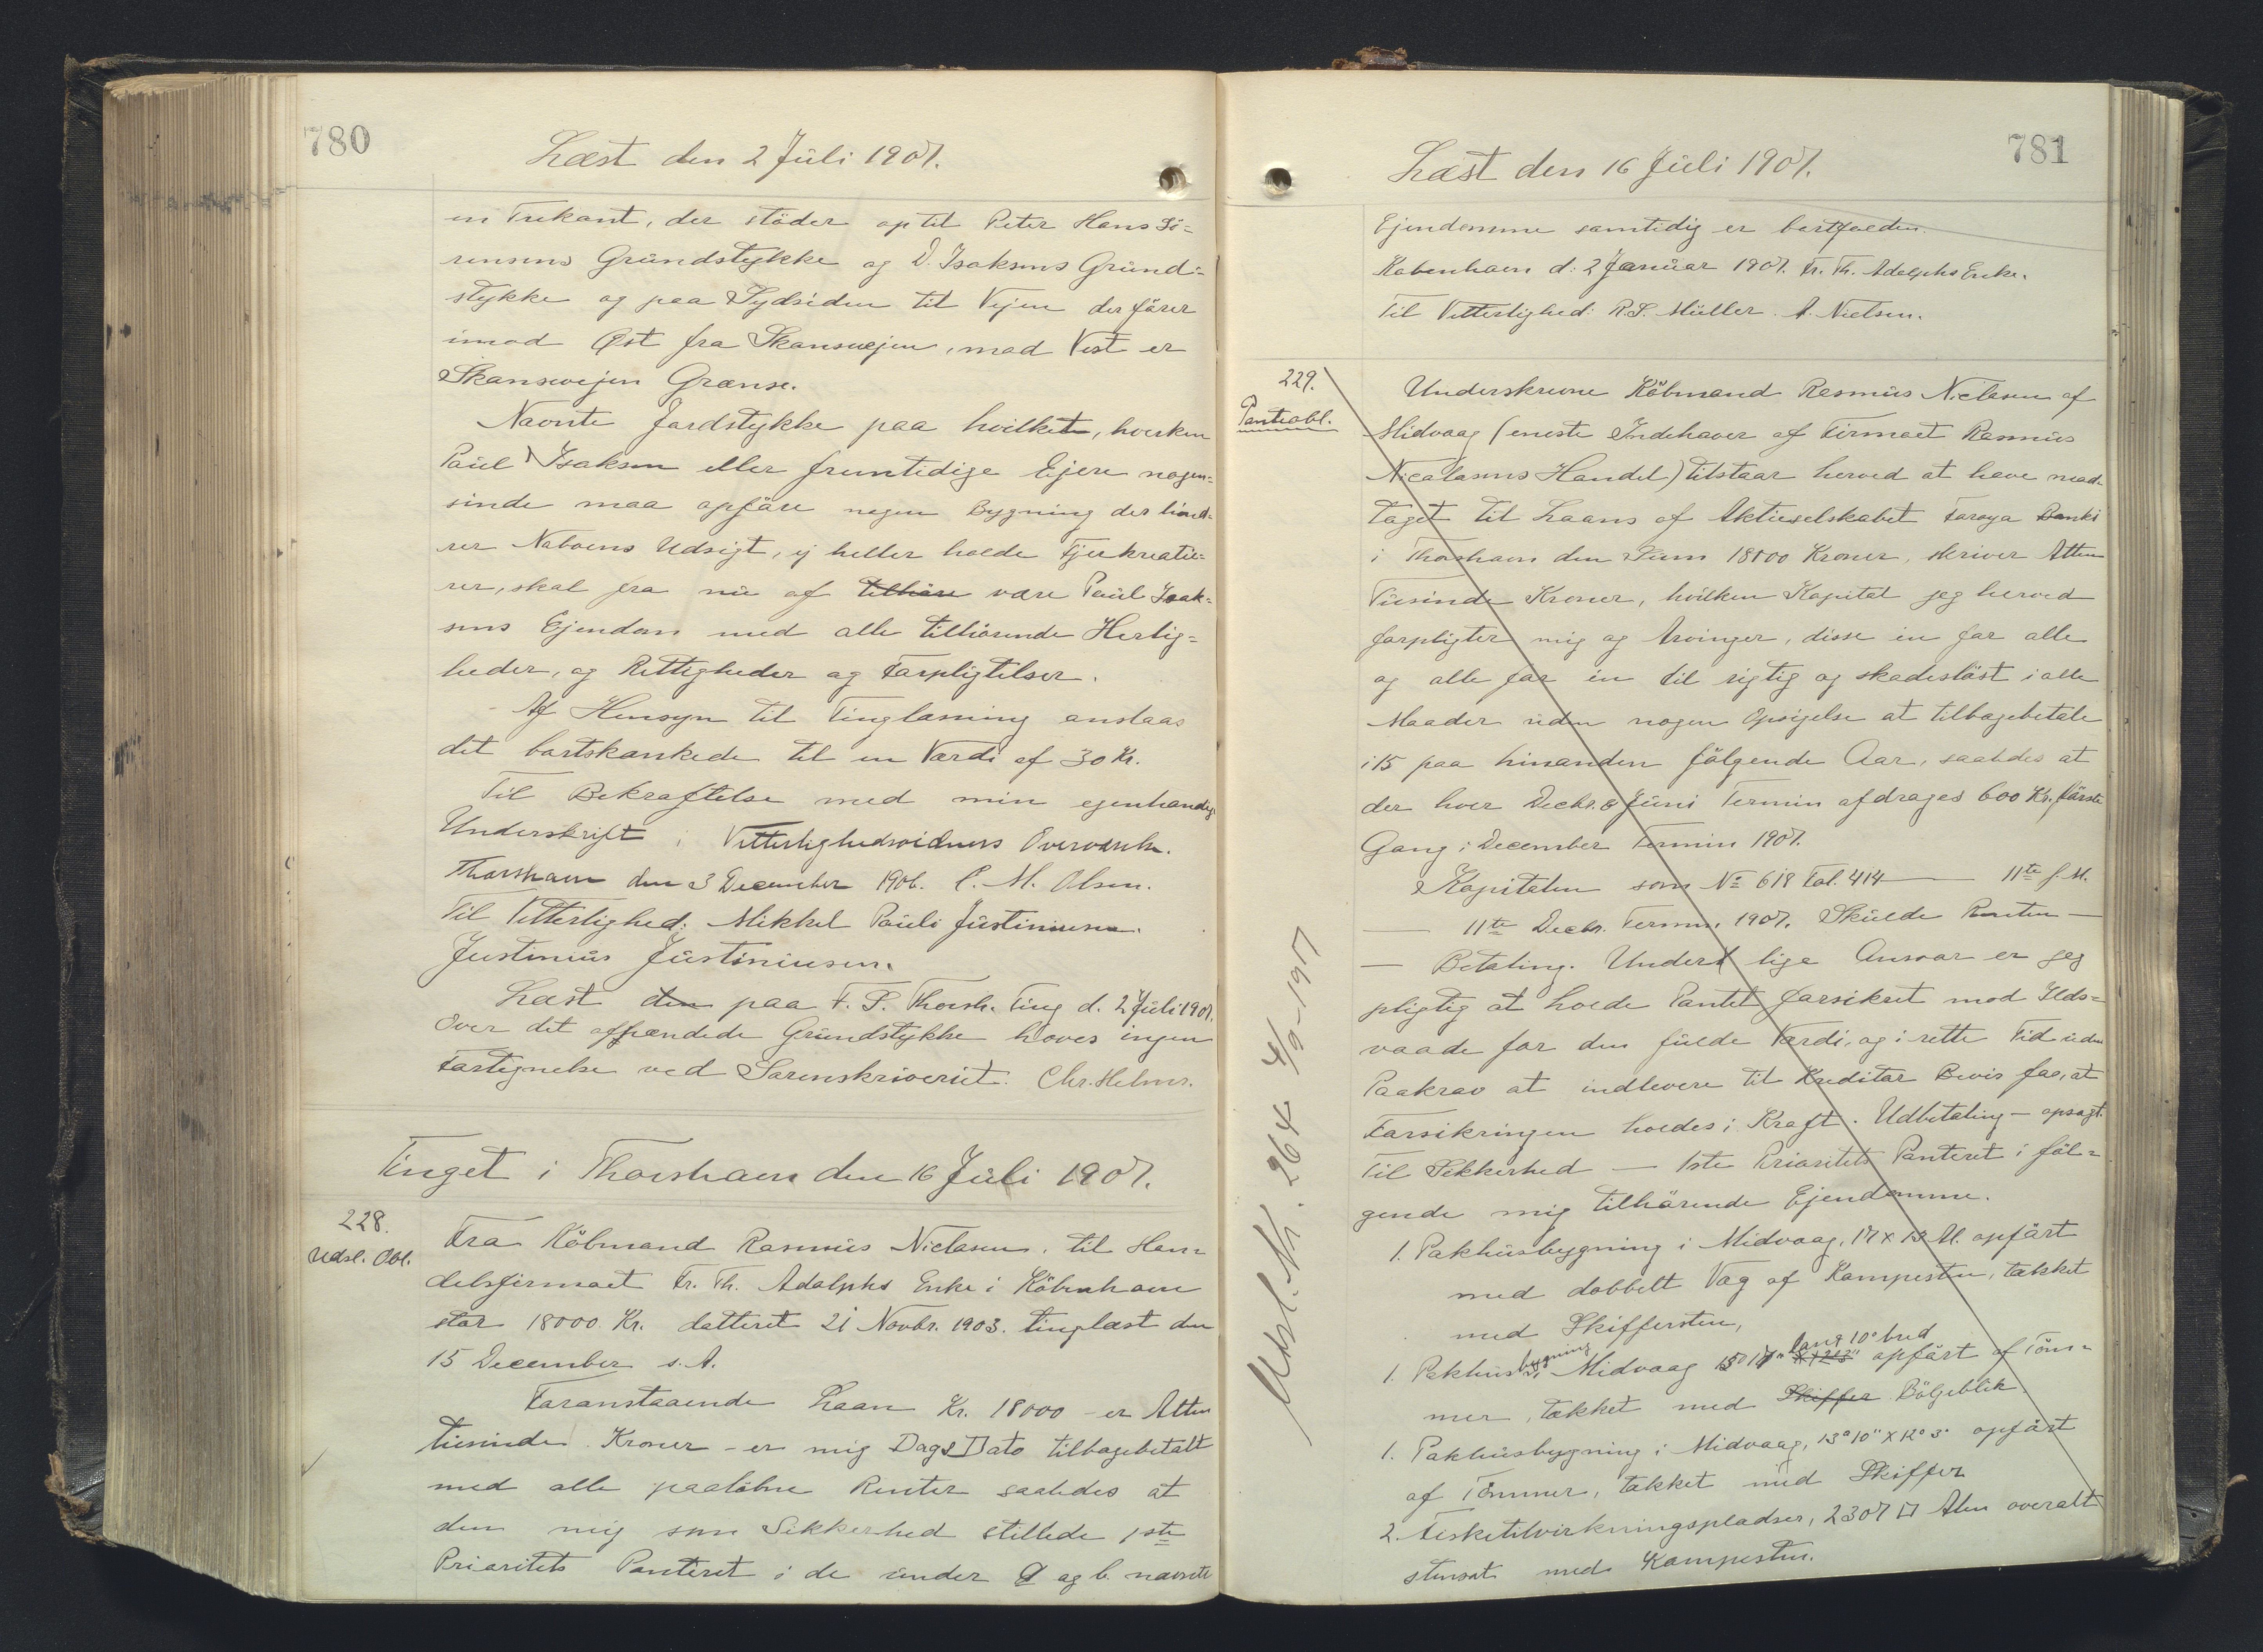 780
Læst den 2 Juli 1907.
en Trekant, der støder op til Peter Hans Sö-
rensens Grundstykke og D. Isaksens Grund-
stykke og paa Sydsiden til Vejen der förer
imod Öst fra Skansevejen, mod Vest er
Skansevejen Grænse.
Nævnte Jordstykke paa hvilket, hverken
Paul Isaksen eller fremtidige Ejere nogen-
sinde maa opföre nogen Bygning der hind-
rer Naboens Udsigt, ej heller holde Fjerkreatu-
rer, skal fra nu af tilhöre være Paul Isak-
sens Ejendom med alle tilhörende Herlig-
heder, og Rettigheder og Forpligtelser.
Af Hensyn til Tinglæsning anslaas
det bortskænkede til en Værdi af 30 Kr.
Til Bekræftelse med min egenhændig
Underskrift i Vitterlighedsvidners Overværelse.
Thorshavn den 3 December 1906. C. M. Olsen.
Til Vitterlighed: Mikkel Pauli Justiniusen.
Justinus Justiniusen.
Læst den paa F. S. Thorsh. Ting d. 2 Juli 1907.
Over det afhændede Grundstykke haves ingen
Fortegnelse ved Sorenskriveriet. Chr. Helms.
Tinget i Thorshavn den 16 Juli 1907.
228.
Udsl. Obl.
Fra Köbmand Rasmus Niclasen, til Han-
delsfirmaet Fr. Th. Adolphs Enke i Köbenhavn
stor 18000 Kr. dateret 21 Novbr. 1903. tinglæst den
15 December s. A.
Foranstaaende Laan Kr. 18000 - er Atten
tusinde Kroner - er mig Dags Dato tilbagebetalt
med alle paalöbne Renter saaledes at
den mig som Sikkerhed stillede 1ste
Prioritets Panteret i de under a og b. nævnte
781
Læst den 16 Juli 1907.
Ejendomme samtidig er bortfalden.
København d: 2 Januar 1907. Fr. Th. Adolphs Enke.
Til Vitterlighed: R. S. Müller. A. Nielsen.
229.
Panteobl.
Underskrevne Köbmand Rasmus Niclasen af
Midvaag (eneste Indehaver af Firmaet Rasmus
Nicolasens Handel) tilstaar herved at have mod-
taget til Laans af Aktieselskabet Føroya Banki
i Thorshavn den Sum 18000 Kroner, skriver Atten
Tusinde Kroner, hvilken Kapital jeg herved
forpligter mig og Arvinger, disse en for alle
og alle for en til rigtig og skadeslöst i alle
Maader uden nogen Opsigelse at tilbagebetale
i 15 paa hinanden fölgende Aar, saaledes at
der hver Decbr. & Juni Termin afdrages 600 Kr. förste
Gang i December Termin 1907.
Kapitalen som No 618 Fol. 414 — 11te J. M.
— 11te Decbr. Termin 1907. Skulde Renten —
— Betaling. Under lige Ansvar er jeg
pligtig at holde Pantet forsikret mod Ilds-
vaade for den fulde Værdi, og i rette Tid uden
Paakrav at indlevere til Kreditor Bevis for, at
Forsikringen holdes i Kraft. Udbetaling — opsagt.
Til Sikkerhed — 1ste Prioritets Panteret i föl-
gende mig tilhörende Ejendomme.
1. Pakhusbygning i Midvaag, 17 x 13 Al. opfört
med dobbelt Væg af Kampesten, tækket
med Skiffersten,
1. Pakhusbygning i Midvaag 15° 17" lang 10° bred opfört af Töm-
mer, tækket med Skiffer Bölgeblik.
1. Pakhusbygning i Midvaag, 13° 10" x 12° 3" opfört
af Tömmer, tækket med Skiffer
2. Fisketilvirkningspladser, 2307 □ Alen overalt
stensat med Kampesten.
Udsl. Nr. 264 4/9-1917